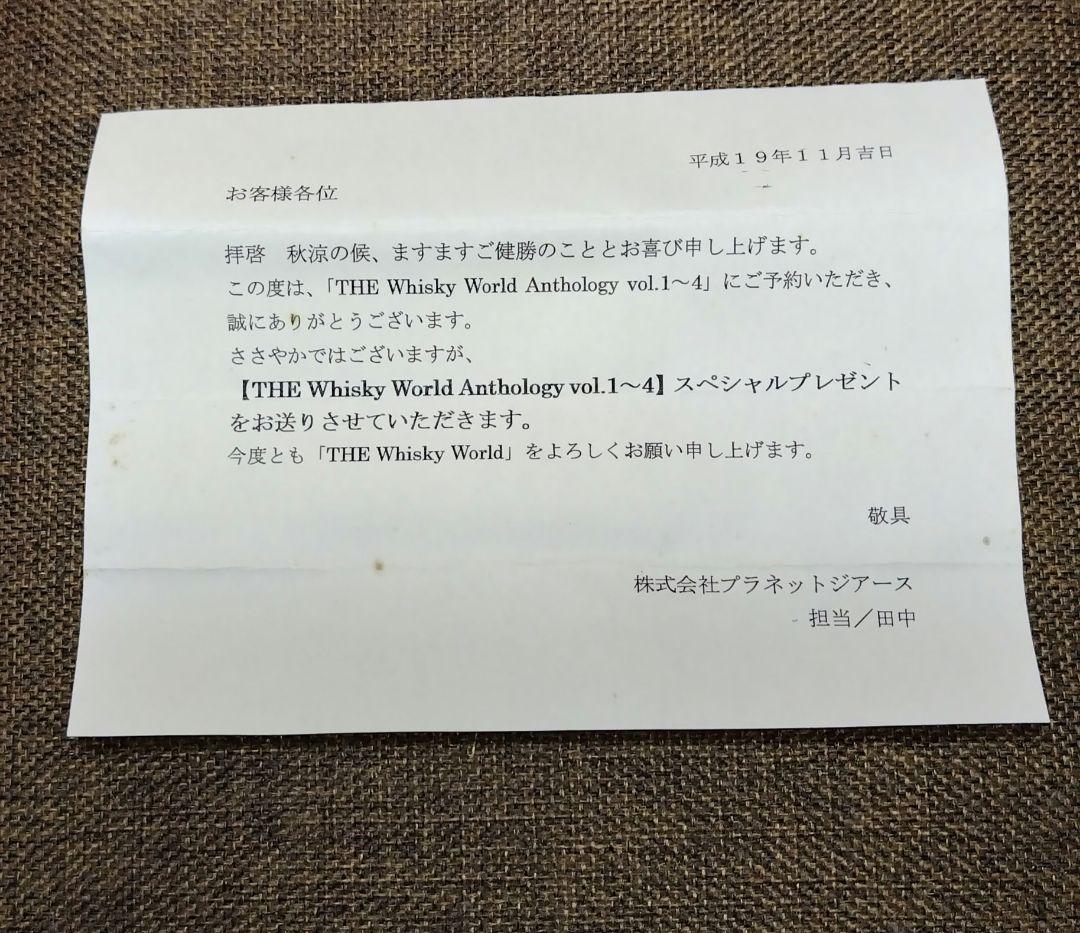 平成１９年１１月吉日
お客様各位
拝啓　秋涼の候、ますますご健勝のこととお喜び申し上げます。
この度は、「THE Whisky World Anthology vol.1～4」にご予約いただき、
誠にありがとうございます。
ささやかではございますが、
【THE Whisky World Anthology vol.1～4】スペシャルプレゼント
をお送りさせていただきます。
今度とも「THE Whisky World」をよろしくお願い申し上げます。
敬具
株式会社プラネットジアース
担当／田中